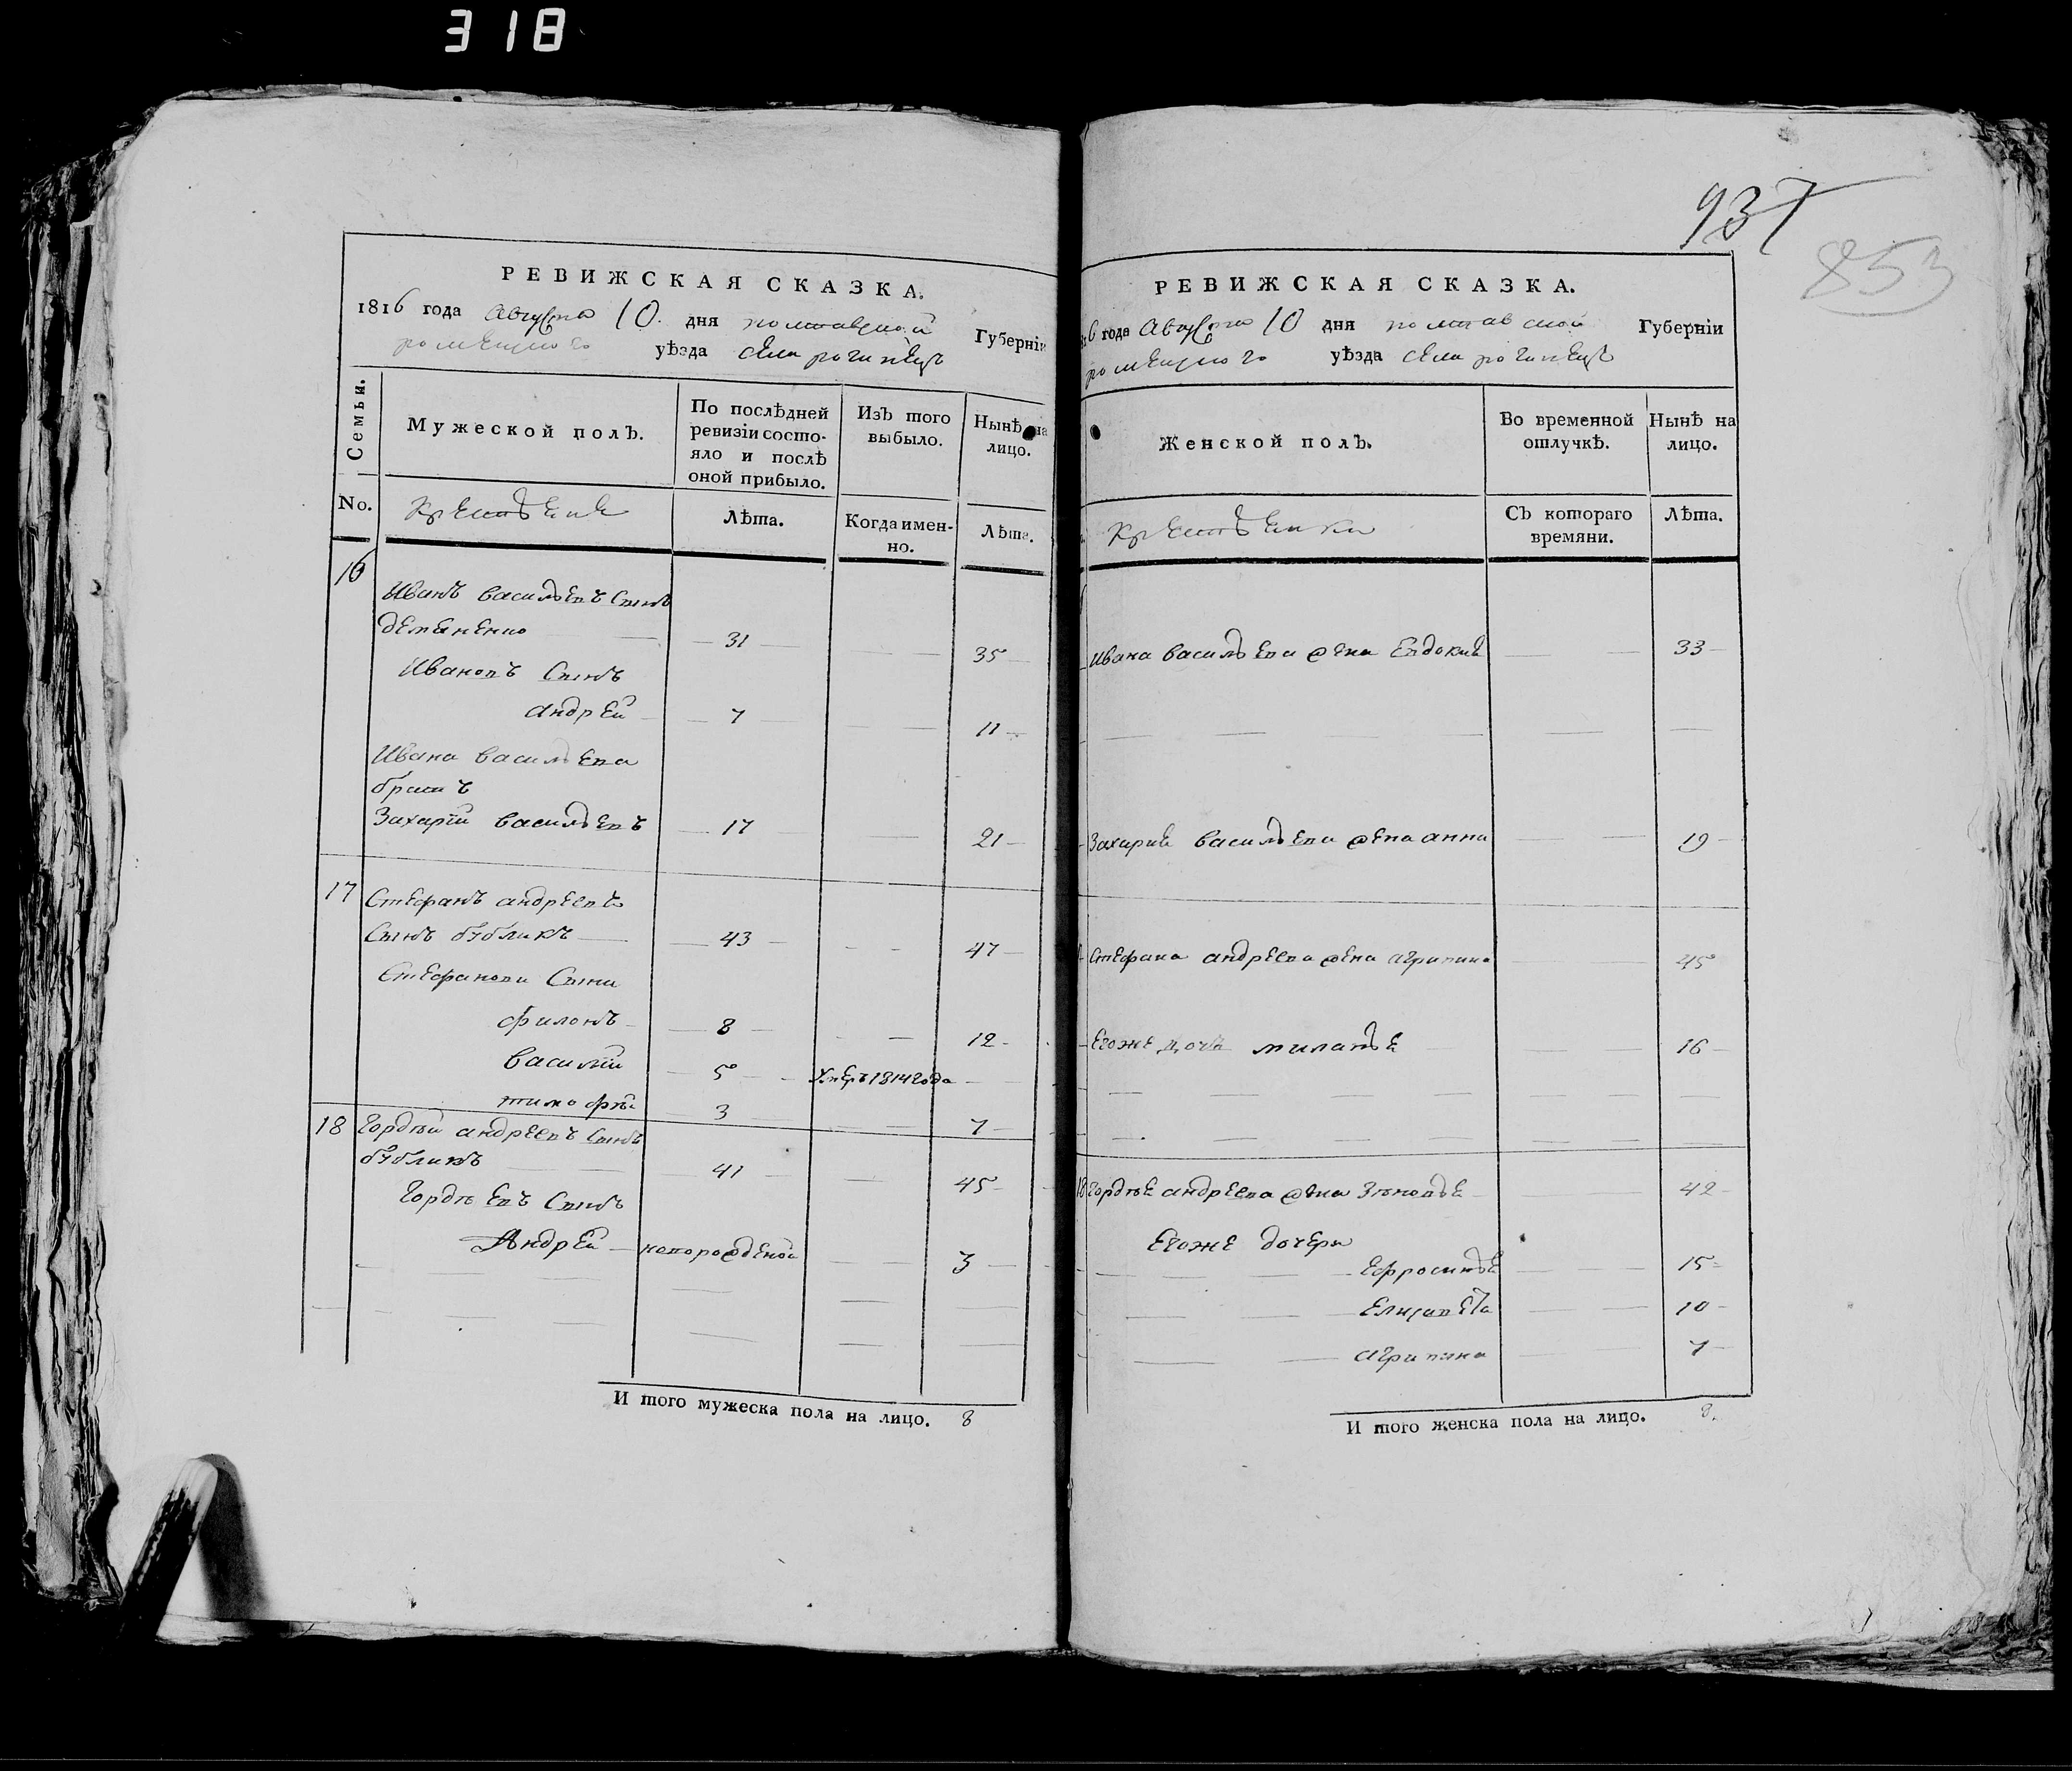 318
937
853
РЕВИЖСКАЯ СКАЗКА.
1816 года Августа 10. дня полтавской Губерніи
роменского уѣзда села рогинецъ
Семьи.
Мужеской полъ.
По послѣдней ревизіи состо-
яло и послѣ оной прибыло.
Изъ того выбыло.
Нынѣ на лицо.
No.
Крестьяне
Лѣта.
Когда имен-
но.
Лѣта.
16
Иванъ васильевъ Сынъ
деменко 31 35
Ивановъ Сынъ
андрей 7 11
Ивана васильева
братъ
Захарій васильевъ 17 21
17 Стефанъ андреевъ
Сынъ бубликъ 43 47
Стефанови Сыни
филонъ 8 12
василій 5 Умеръ 1814 года
тимофѣй 3 7
18 Гордѣй андреевъ Сынъ
бубликъ 41 45
Гордѣевъ Сынъ
Андрей новорожденой 3
И того мужеска пола на лицо. 8
РЕВИЖСКАЯ СКАЗКА.
6 года Августа 10 дня полтавской Губерніи
роменского уѣзда села рогинецъ
Женской полъ.
Во временной отлучкѣ.
Нынѣ на лицо.
Крестьянки
Съ котораго времяни.
Лѣта.
Ивана васильева жена Евдокия 33
Захария васильева жена анна 19
Стефана андреева жена агрипина 45
Егоже дочь миланья 16
18 Гордѣя андреева жена Зѣновья 42
Егоже дочери
Ефросинья 15
Елизавета 10
агрипина 7
И того женска пола на лицо. 8.